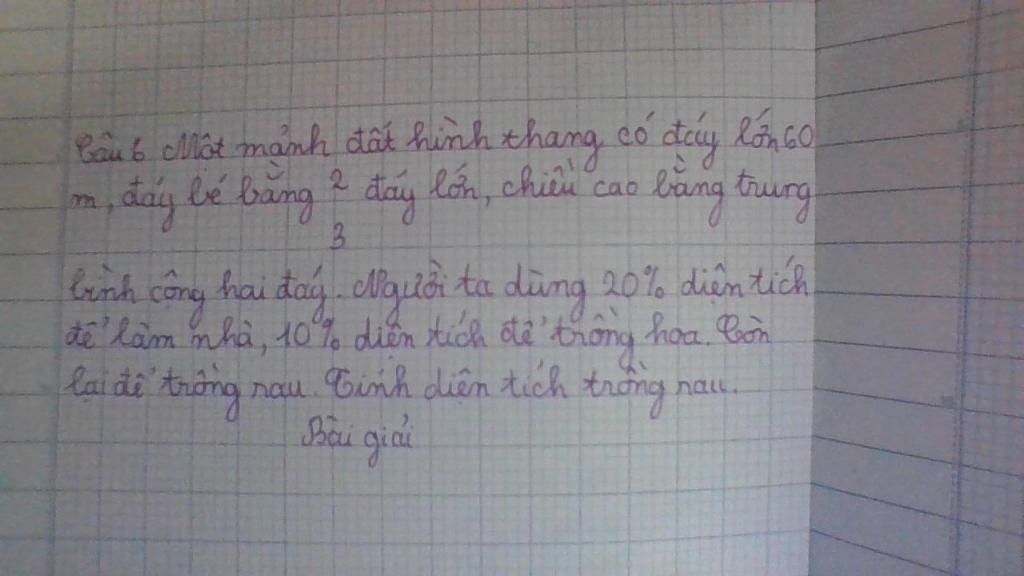 Câu 6 Một mảnh đất hình thang có đáy lớn 60
m, đáy bé bằng 2 đáy lớn, chiều cao bằng trung
3
bình cộng hai đáy. Người ta dùng 20% diện tích
để làm nhà, 10% diện tích để trồng hoa. Còn
lại để trồng rau. Tính diện tích trồng rau.
Bài giải